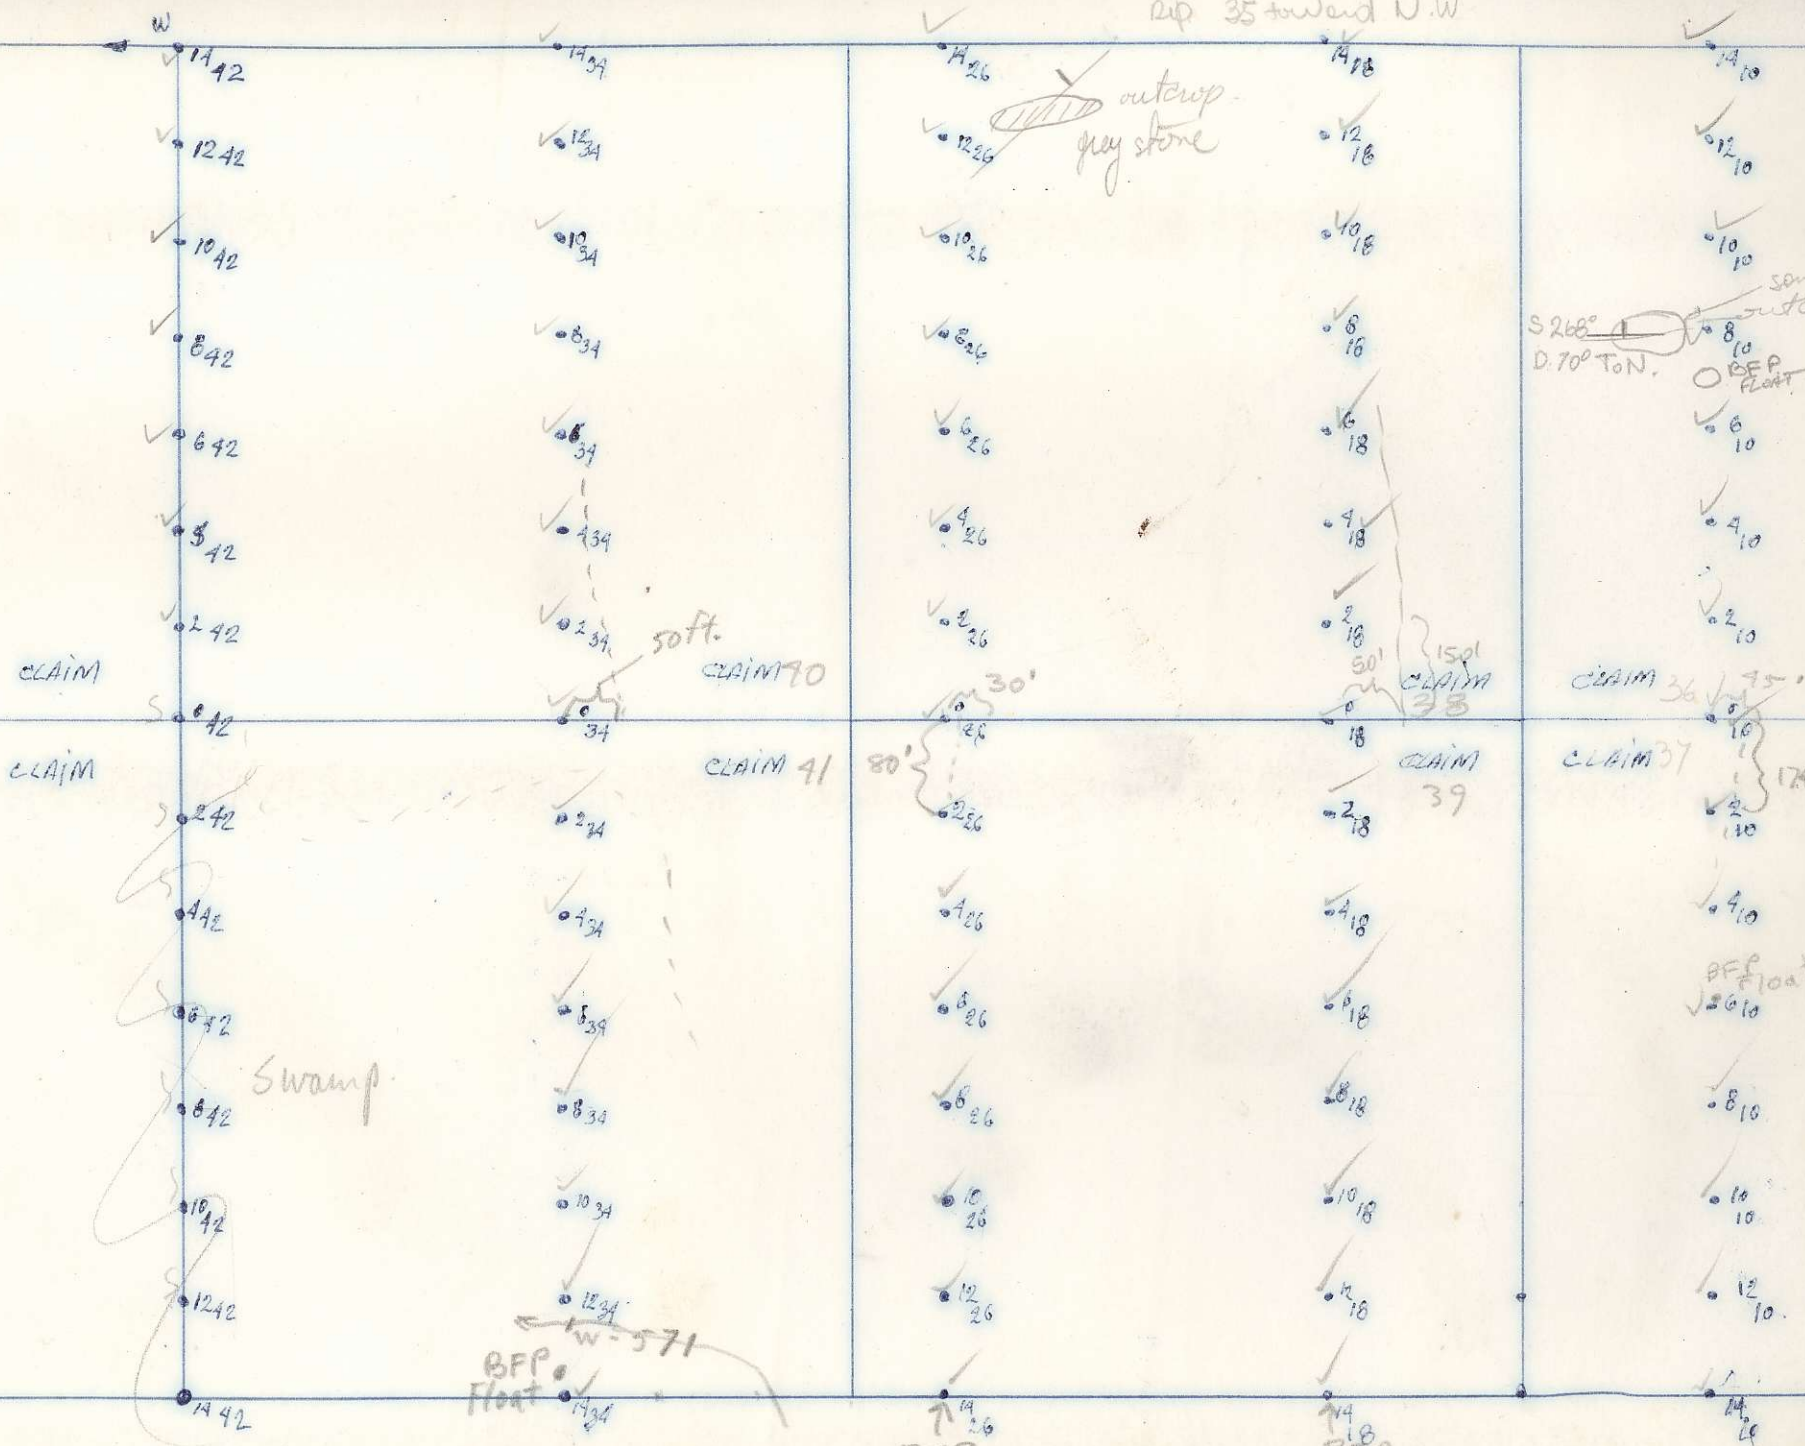 Dip 35 toward N.W
W
14 42
14 34
14 26
14 18
14 10
outcrop.
grey stone
12 42
12 34
12 26
12 18
12 10
10 42
10 34
10 26
10 18
10 10
8 42
8 34
8 26
8 18
8 10
S 268°
D. 70° To N.
BFP
FLOAT
6 42
6 34
6 26
6 18
6 10
42
4 34
4 26
4 18
4 10
2 42
2 34
2 26
2 18
2 10
50 ft.
150'
50'
CLAIM
CLAIM 40
30'
CLAIM
38
CLAIM 36
45'
S
0 42
0 34
0 26
0 18
0 10
CLAIM
CLAIM 41
80'
CLAIM
39
CLAIM 37
2 42
2 34
2 26
2 18
2 10
4 42
4 34
4 26
4 18
4 10
BFP
6 42
6 34
6 26
6 18
6 10
Swamp.
8 42
8 34
8 26
8 18
8 10
10 42
10 34
10 26
10 18
10 10
12 42
12 34
12 26
12 18
12 10.
W-571
BFP
Float
14 42
14 34
14 26
14 18